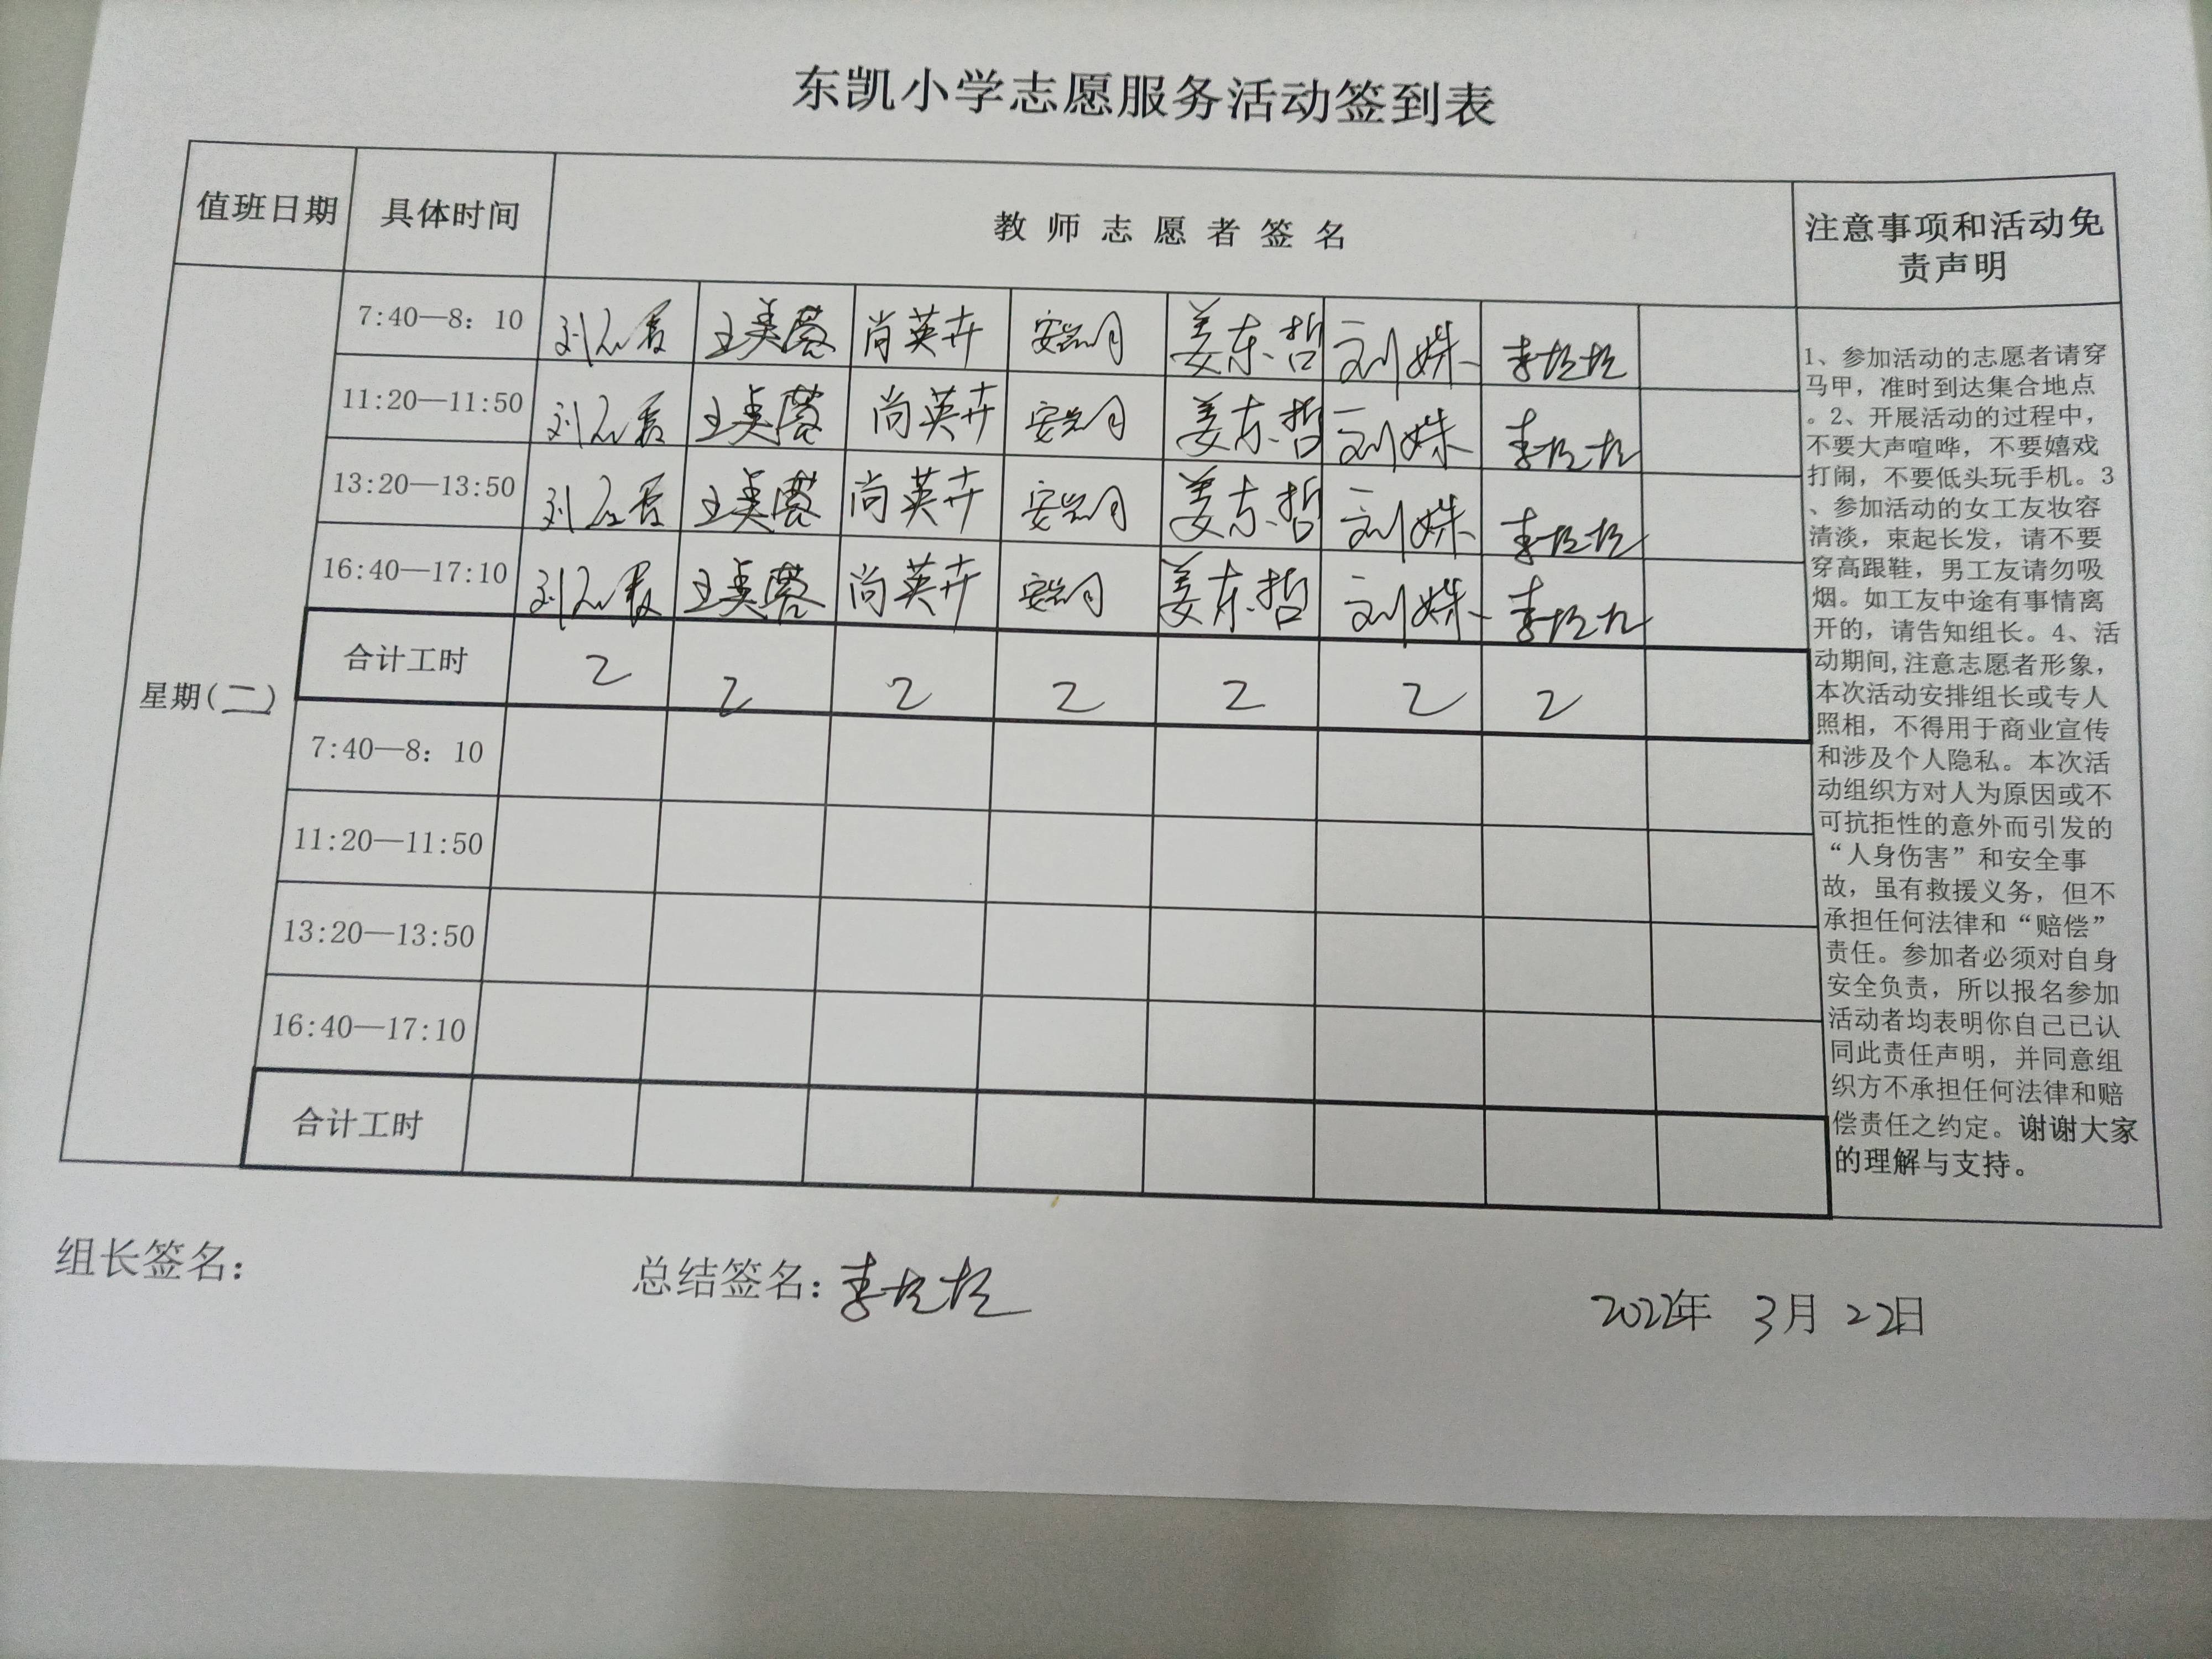 东凯小学志愿服务活动签到表
值班日期 具体时间 教师志愿者签名 注意事项和活动免
责声明
7:40—8：10 尚英卉 姜东哲 刘姝
11:20—11:50 尚英卉 姜东哲 刘姝
13:20—13:50 尚英卉 姜东哲 刘姝
16:40—17:10 尚英卉 姜东哲 刘姝
合计工时 2 2 2 2 2 2 2
星期(二)
7:40—8：10
11:20—11:50
13:20—13:50
16:40—17:10
合计工时
1、参加活动的志愿者请穿
马甲，准时到达集合地点
。2、开展活动的过程中，
不要大声喧哗，不要嬉戏
打闹，不要低头玩手机。3
、参加活动的女工友妆容
清淡，束起长发，请不要
穿高跟鞋，男工友请勿吸
烟。如工友中途有事情离
开的，请告知组长。4、活
动期间,注意志愿者形象，
本次活动安排组长或专人
照相，不得用于商业宣传
和涉及个人隐私。本次活
动组织方对人为原因或不
可抗拒性的意外而引发的
“人身伤害”和安全事
故，虽有救援义务，但不
承担任何法律和“赔偿”
责任。参加者必须对自身
安全负责，所以报名参加
活动者均表明你自己已认
同此责任声明，并同意组
织方不承担任何法律和赔
偿责任之约定。谢谢大家
的理解与支持。
组长签名： 总结签名： 2022年 3月 22日